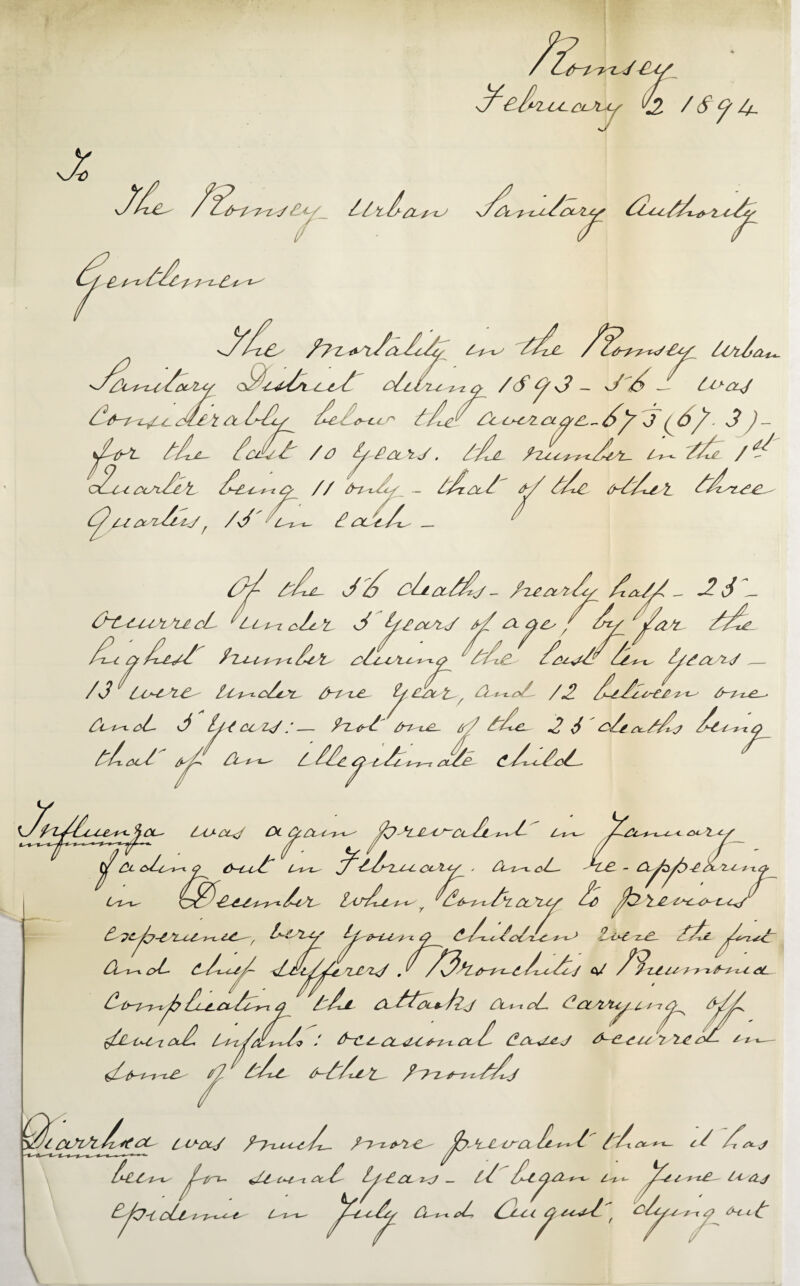 Romsey
February 2 1894
To
The Romsey Urban Sanitary Authority
Gentlemen
The Mortality in the Romsey Urban
Sanitary District during 1893 - 56 - was
Considerably below the average - 673 (67.3) -
for the last 10 years. the number in the 1st
Quarter being 11 only - that of the other three
Quarters, 15 in each -
Of the 56 deaths - nearly half - 25 -
Occurred under 5 years of age, by far the
highest number during the last ten years -
13 were under one year, and 12 between one
and 5 years:- not one of the 25 deaths being
that of an illegitimate child
Influenza was again prevalent in January
fading out in February. and re-appearing
in December when, Contrary to previous
experience, very young children were the first
and chief sufferers. Bronchitis or Pneumonia
Complicating the attacks and carrying off
several infants: occasional cases occurred in
some of the other months
Diarrhœa was much more prevalent than it has
been for several years - it began in June was
Epidemic in July and August, dying out